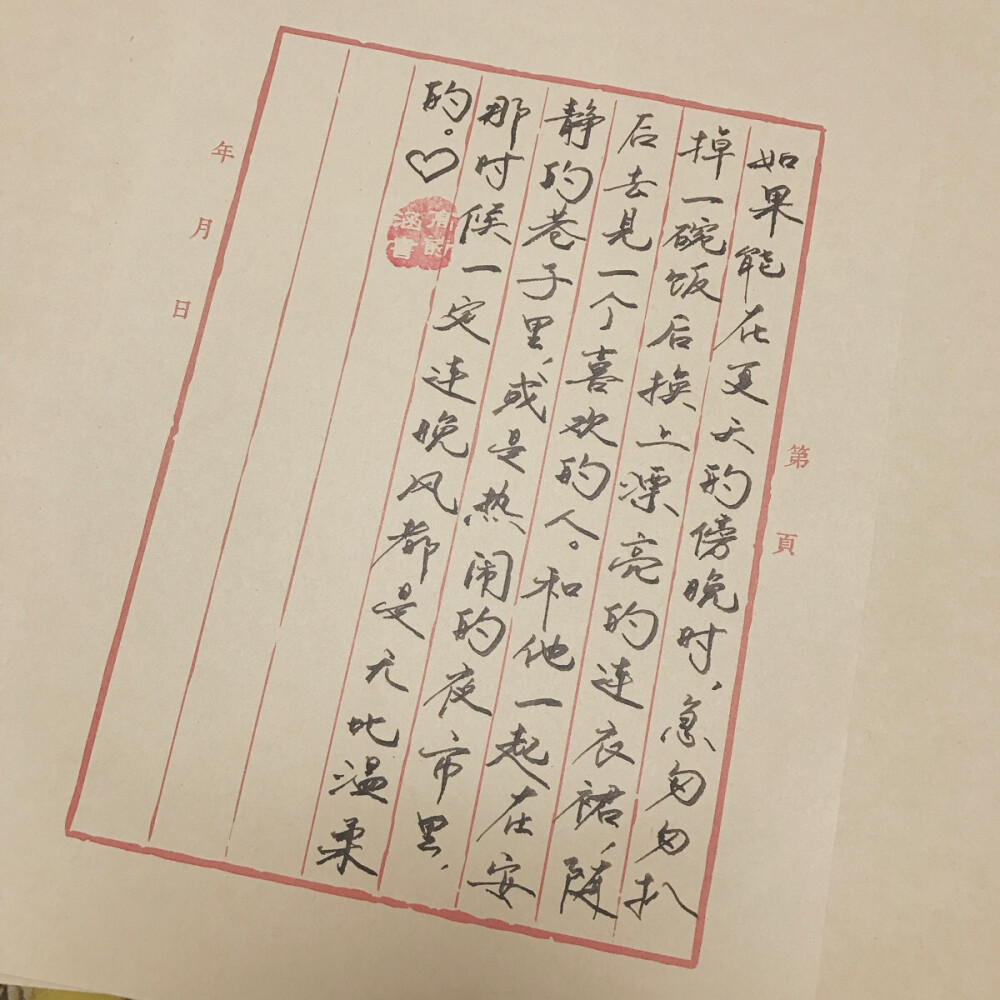 第 頁
如果能在夏天的傍晚时，急匆匆扒
掉一碗饭后换上漂亮的连衣裙，随
后去见一个喜欢的人。和他一起在安
静的巷子里，或是热闹的夜市里，
那时候一定连晚风都是无比温柔
的。♡
年 月 日